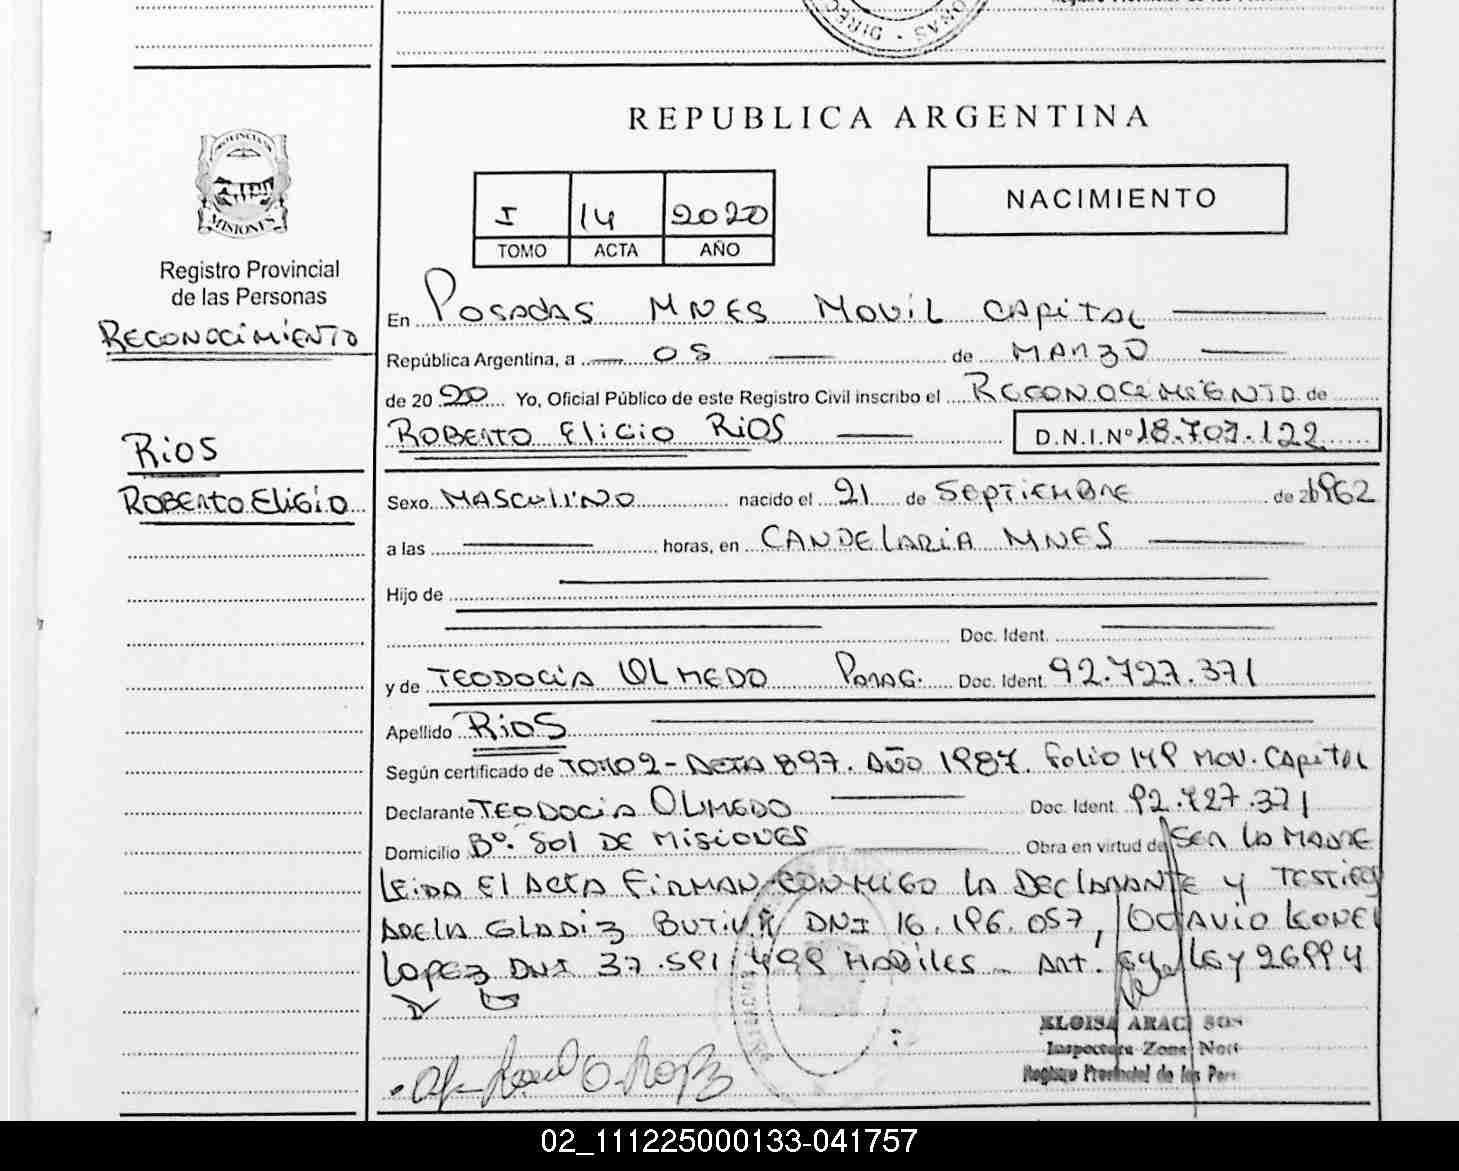 DIREC
ORAS
REPUBLICA ARGENTINA
MISIONES
Registro Provincial
de las Personas
I 14 2020
TOMO ACTA AÑO
NACIMIENTO
RECONOCIMIENTO
RIOS
ROBERTO ELIGIO
En POSADAS MNES MOVIL CAPITAL
República Argentina, a 05 de MARZO
de 2020 Yo, Oficial Público de este Registro Civil inscribo el RECONOCIMIENTO de
ROBERTO ELIGIO RIOS D.N.I.Nº 18.707.122
Sexo MASCULINO nacido el 21 de SEPTIEMBRE de 1962
a las horas, en CANDELARIA MNES
Hijo de
Doc. Ident.
y de TEODOCIA OLMEDO PARAG. Doc. Ident. 92.727.371
Apellido RIOS
Según certificado de TOMO 2 - ACTA 897. AÑO 1987. Folio 149 MOV. CAPITAL
Declarante TEODOCIA OLMEDO Doc. Ident. 92.727.371
Domicilio Bº. SOL DE MISIONES Obra en virtud de SER LA MADRE
LEIDA EL ACTA FIRMAN CONMIGO LA DECLARANTE Y TESTIGOS
ADELA GLADIZ DNI 16.196.057, OCTAVIO LIONEL
LOPEZ DNI 37.591.499 HABILES - Art. LEY 26994
ELOISA ARAC
Inspectora Zona
Registro Provincial de las Pers
02_111225000133-041757